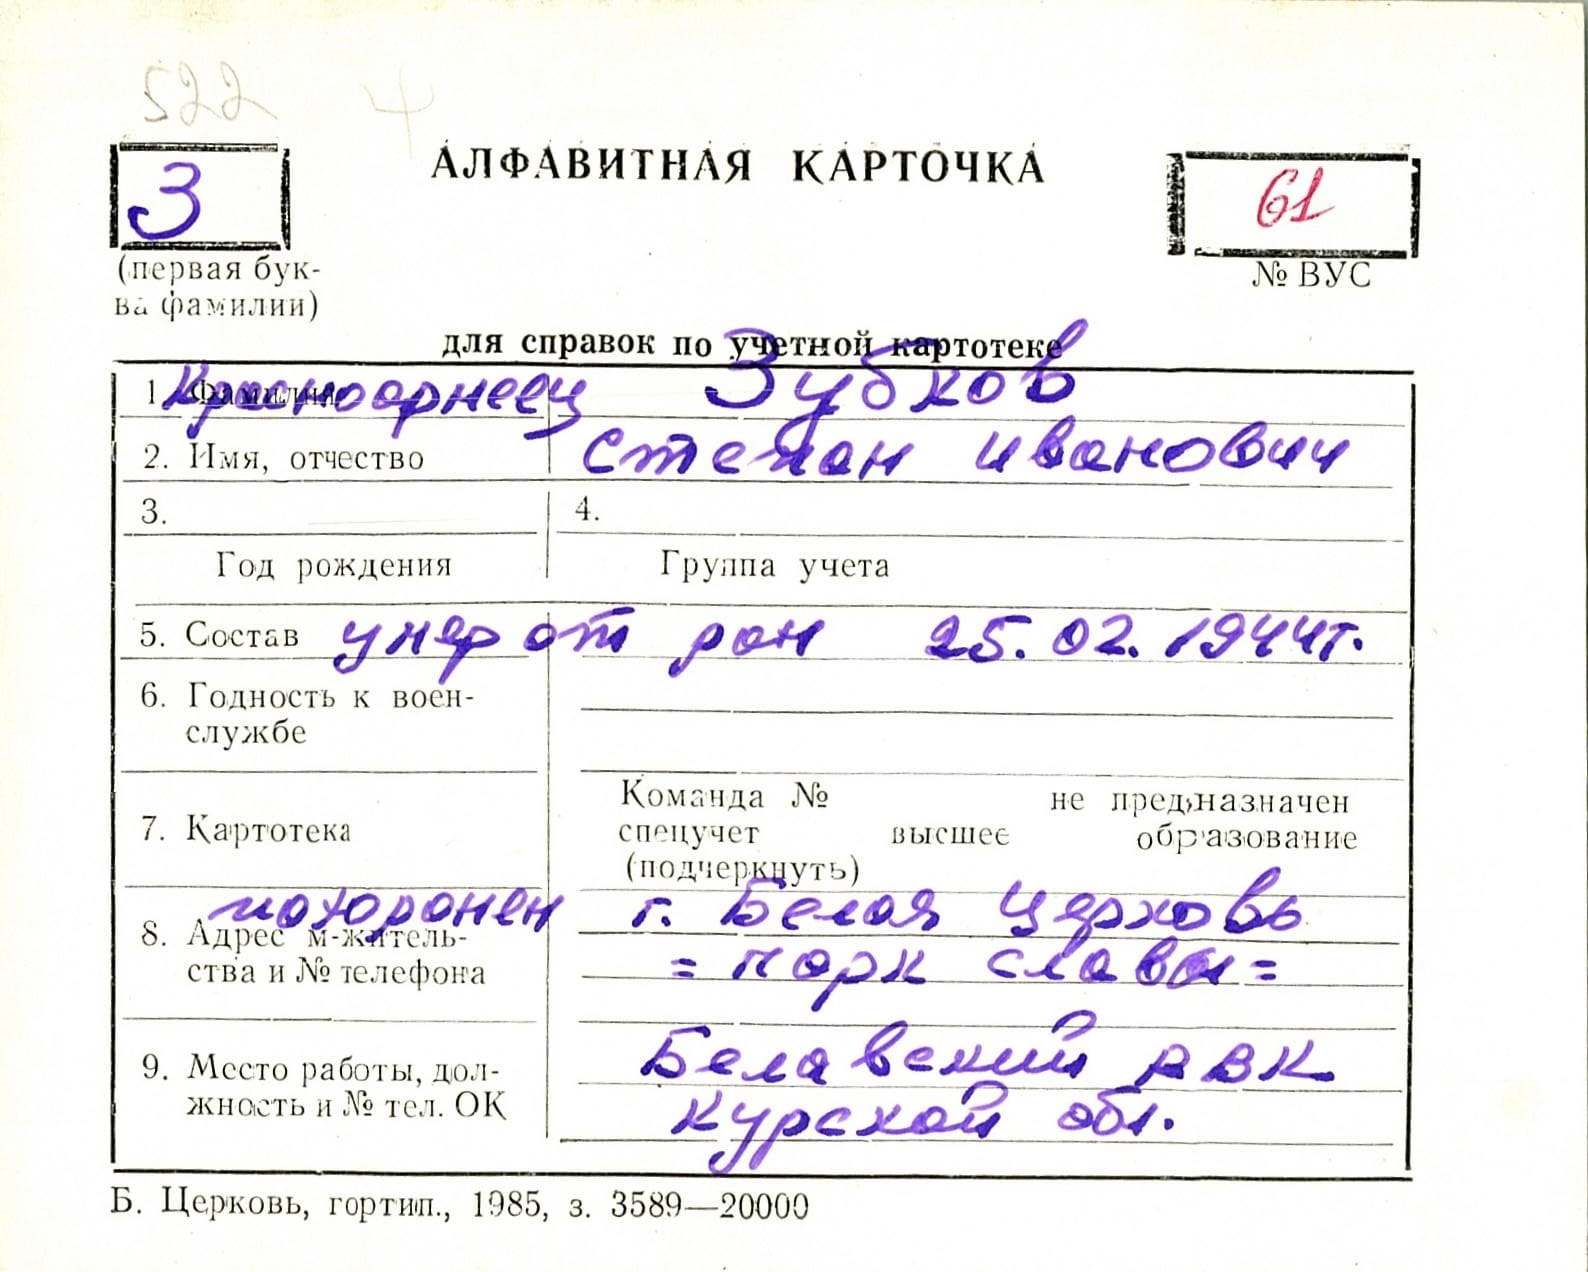 522 4
АЛФАВИТНАЯ КАРТОЧКА
З
61
(первая бук-
ва фамилии)
№ ВУС
для справок по учетной картотеке
1. Фамилия Красноармеец Зубков
2. Имя, отчество Степан Иванович
3. 4.
Год рождения Группа учета
5. Состав умер от ран 25.02.1944г.
6. Годность к воен-
службе
7. Картотека
Команда № не предназначен
спецучет высшее образование
(подчеркнуть)
похоронен г. Белая Церковь
8. Адрес м-житель-
ства и № телефона
= парк славы =
9. Место работы, дол-
жность и № тел. ОК
Белавский РВК
Курской обл.
Б. Церковь, гортип., 1985, з. 3589—20000